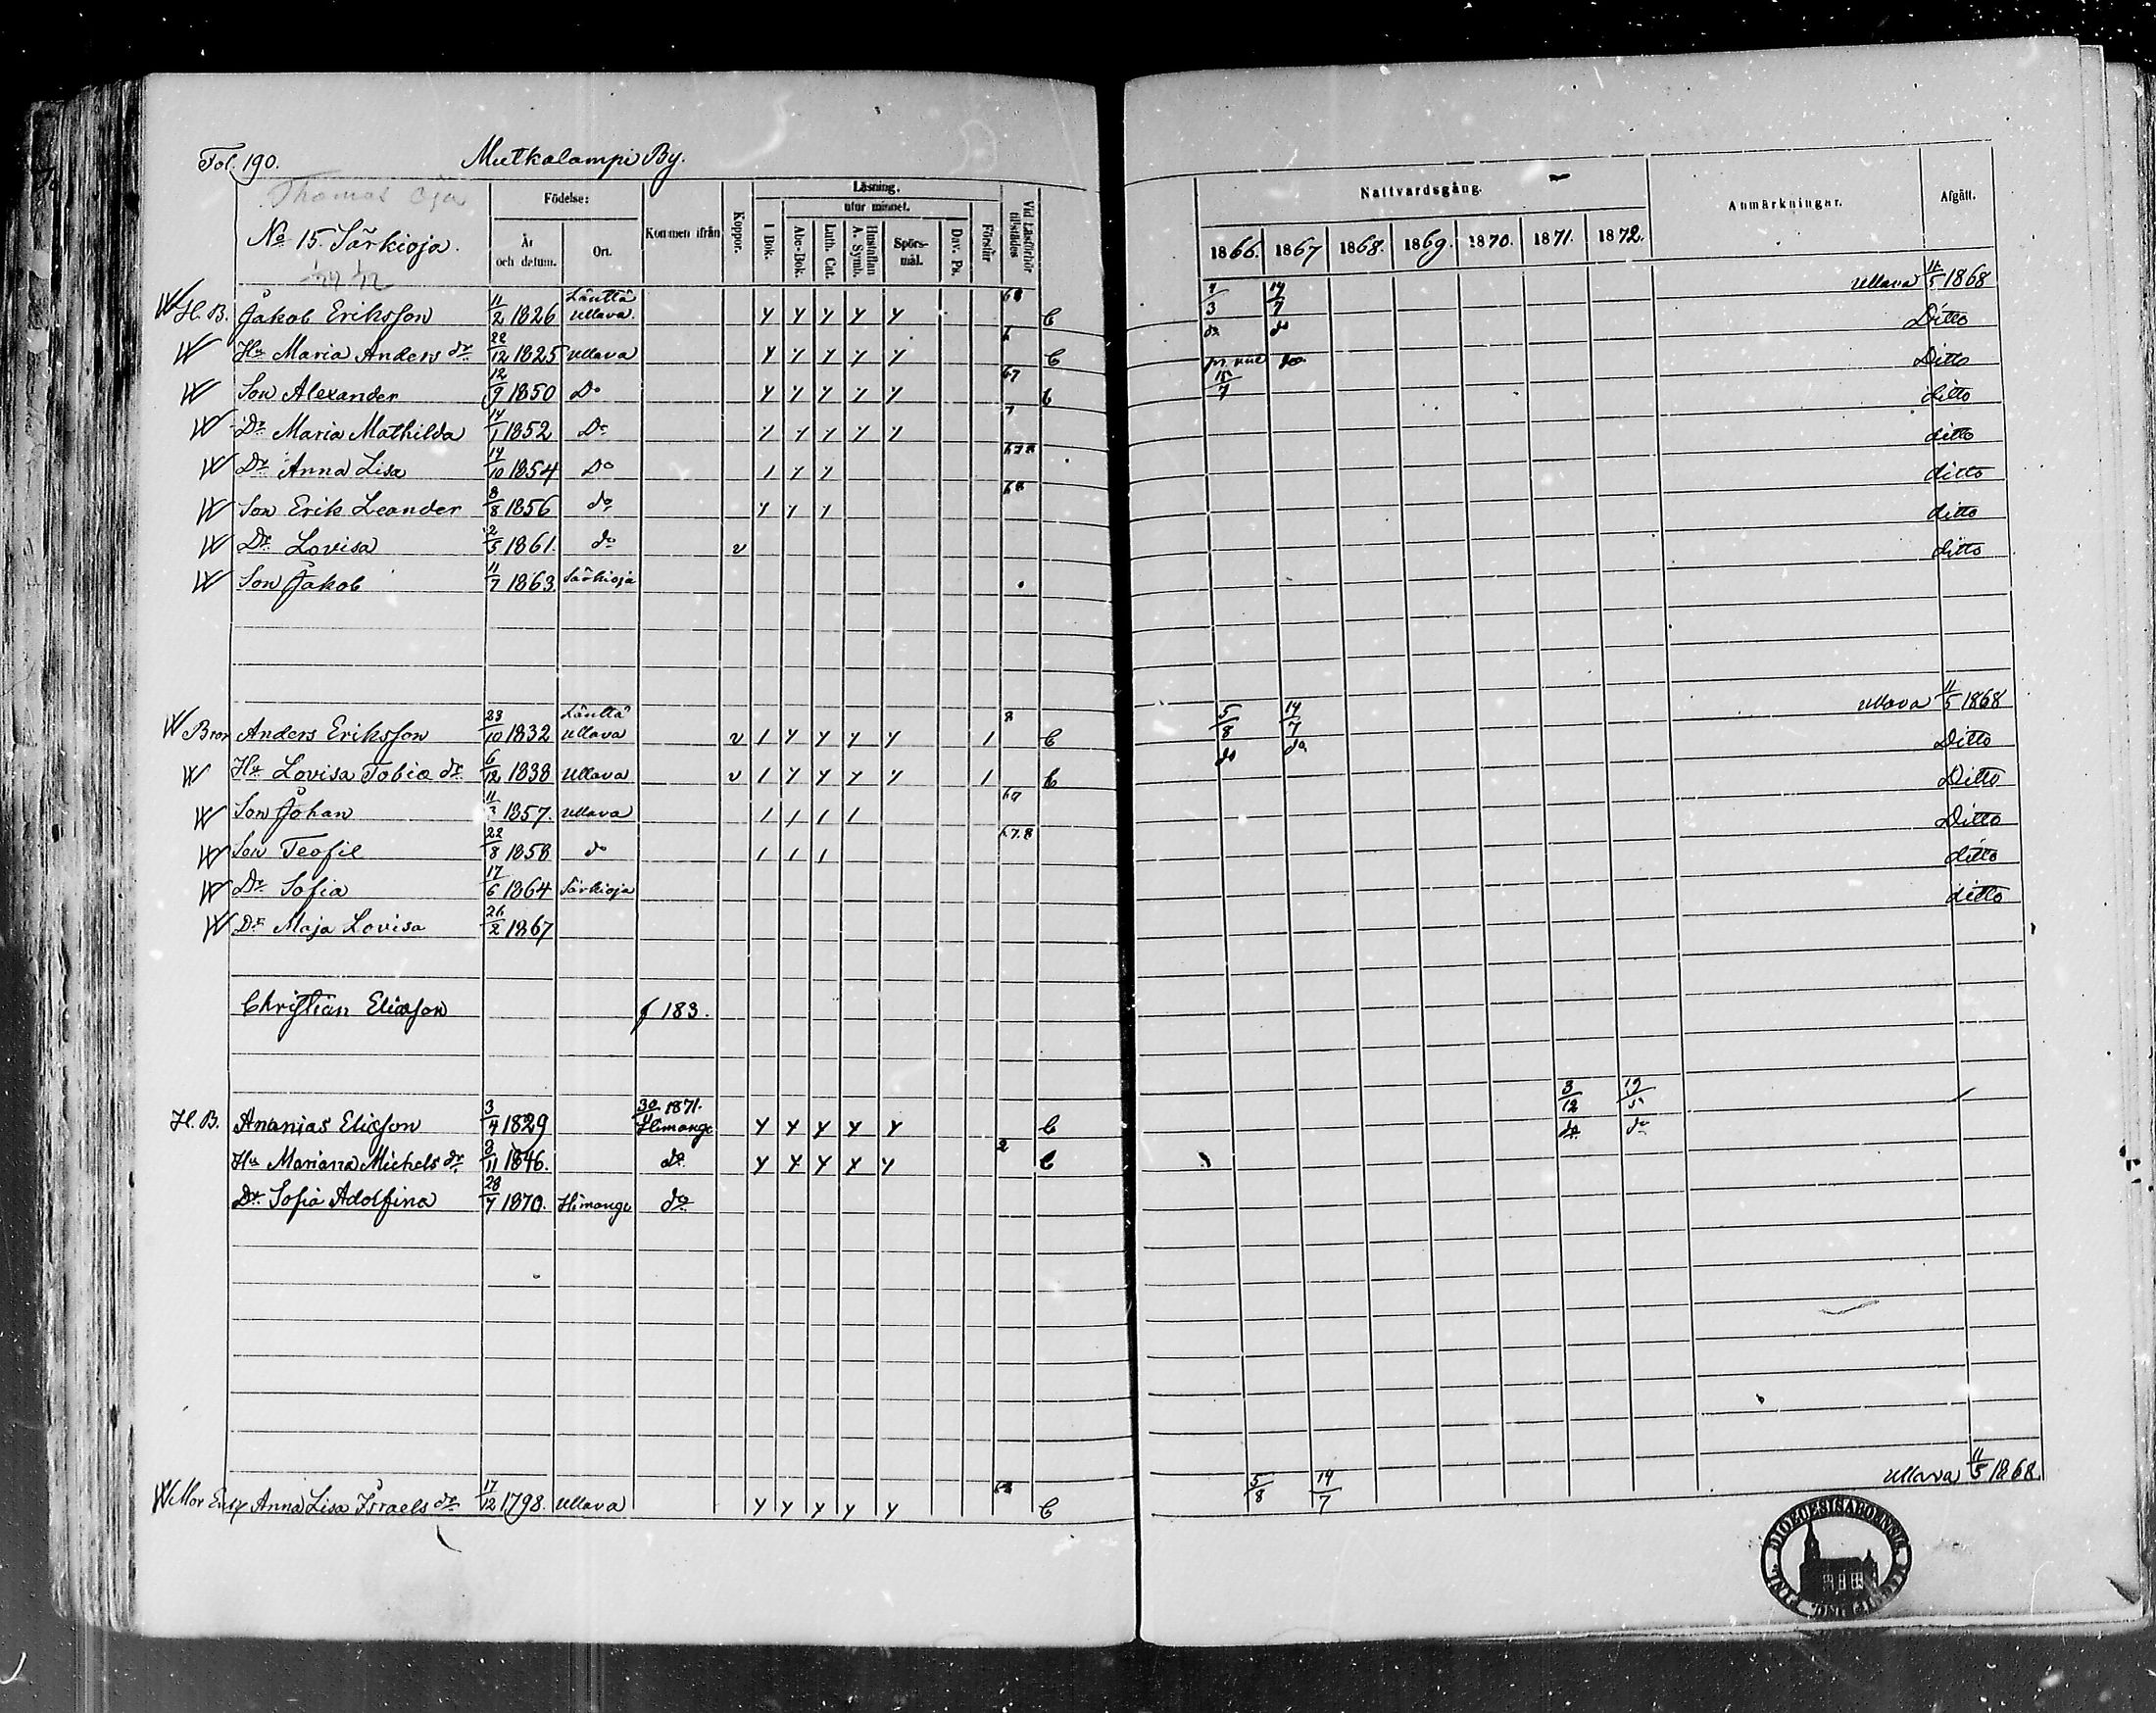 Fol. 190. Mutkalampi By.
Thomas Oja
No 15. Särkioja.
Födelse:
År och datum.
Ort.
Kommen ifrån
Koppor.
Läsning.
utur minnet.
I Bok.
Abc-Bok.
Luth. Cat.
Hustaflan A. Symb.
Spörsmål.
Dav. Ps.
Förstår
Vid Läsförhör tillstädes
Nattvardsgång.
1866. 1867 1868. 1869. 1870. 1871. 1872.
Anmärkningar.
Afgått.
H. B. Jakob Eriksson 11/2 1826 Länttä Ullava y y y y y 68 C 4/3 14/7 Ullava 11/5 1868
Hu Maria Anders dr 22/12 1825 Ullava y y y y y C do do Ditto
Son Alexander 12/9 1850 Do y y y y y 67 C do Ditto
Dr Maria Mathilda 14/1 1852 Do y y y y y 7 15/7 ditto
Dr Anna Lisa 14/10 1854 Do 1 y y 678 ditto
Son Erik Leander 8/8 1856 do y y 1 68 ditto
Dr Lovisa 2/5 1861. do v ditto
Son Jakob 11/7 1863 Särkioja ditto
Bror Anders Eriksson 23/10 1832 Länttä Ullava v 1 y y y y 1 8 C 5/8 14/7 Ullava 11/5 1868
Hu Lovisa Tobiæ dr 6/12 1838 Ullava v 1 y y y y 1 C do do Ditto
Son Johan 11/3 1857. Ullava 1 1 1 1 67 Ditto
Son Teofil 22/8 1858 do 1 1 1 67.8 Ditto
Dr Sofia 17/6 1864 Särkioja ditto
Dr Maja Lovisa 26/2 1867 ditto
Christian Eliæson f 183.
H. B. Ananias Eliæson 3/4 1829 30/11 1871. Himango y y y y y C 3/12 19/5
Hu Mariana Michels dr 2/11 1846. do y y y y y 2 C do do
Dr Sofia Adolfina 28/7 1870. Himango do
Mor Enk Anna Lisa Israels dr 17/12 1798. Ullava y y y y y 68 C 5/8 14/7 Ullava 11/5 1868.